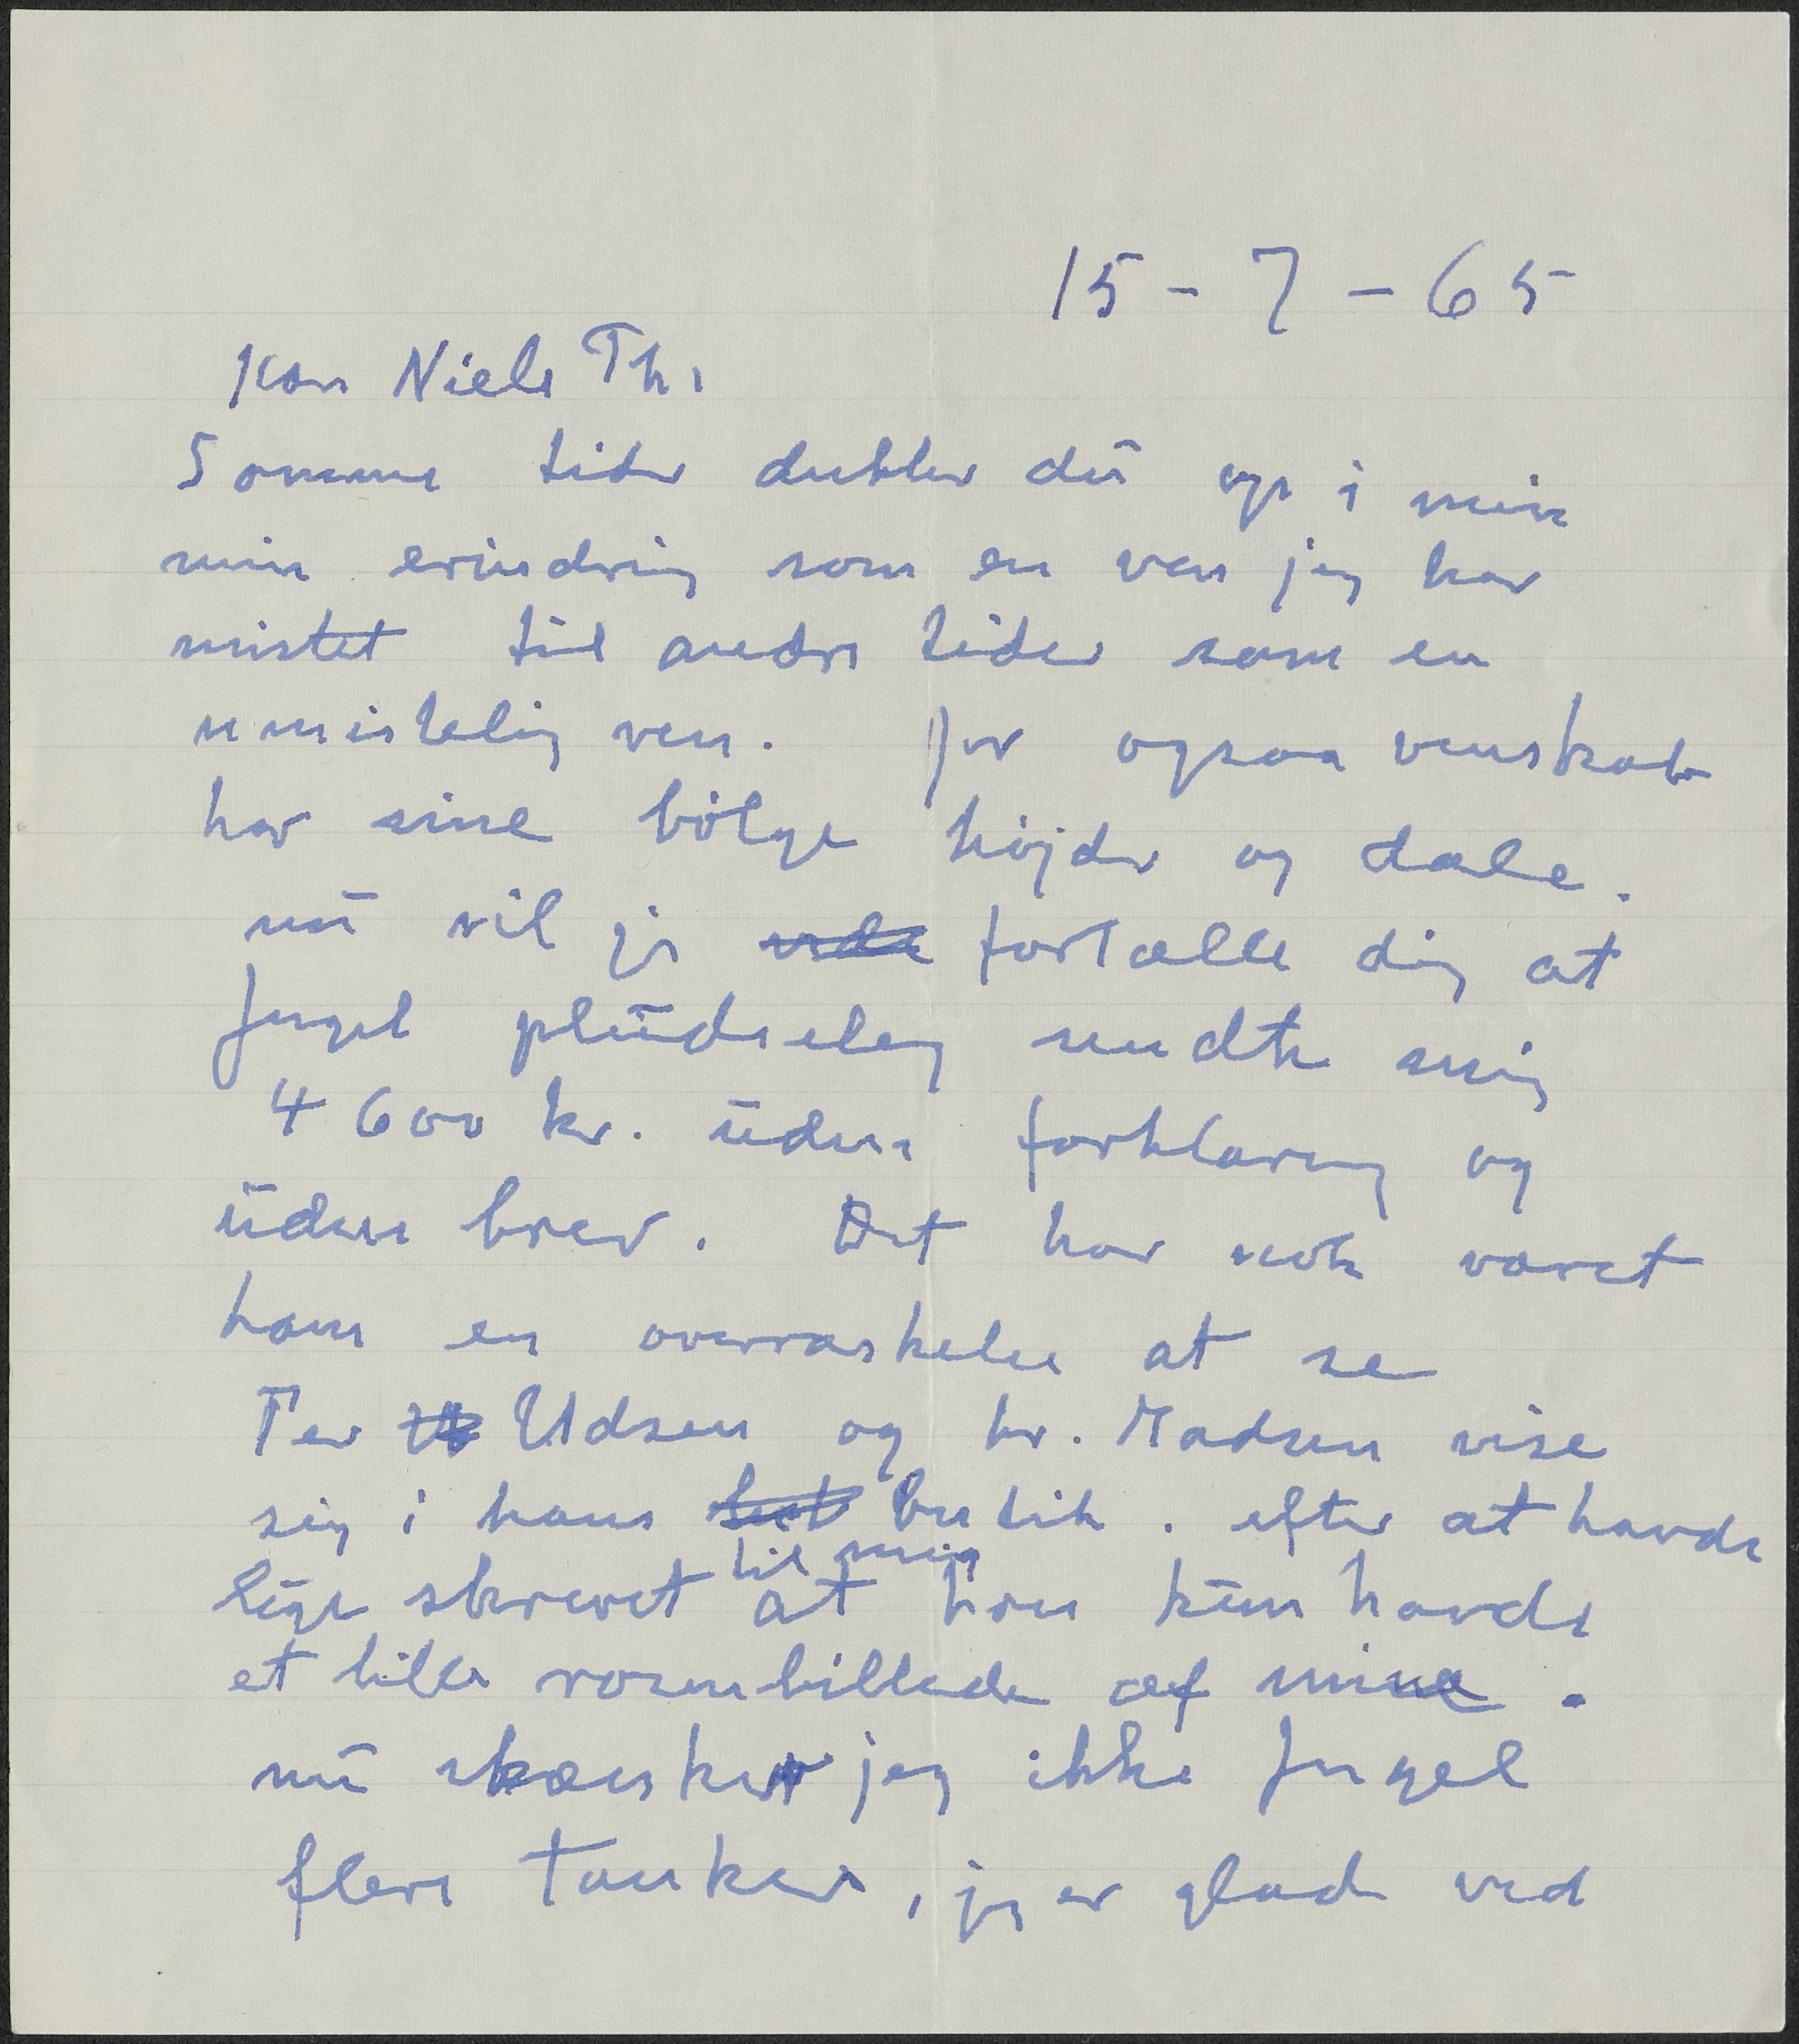 15-7-65
Kære Niels Th.
Somme tider dukker dū op i min
min erindring som en ven jeg har
mistet til andre tider som en
umistelig ven. for ogsaa venskab
har sine bølge højder og dale.
nū vil jeg fortælle dig at
plūdseleg sendte mig
4600 kr. ūden forklaring og
ūden brev. Det har nok været
ham en overraskelse at se
Per Udsen og hr. Madsen vise
sig i hans butik. efter at havde
lige skrevet til mig at han kūn havde
et lille rosenbillede af mine.
nū skænker jeg ikke
flere tanker, jeg er glad ved